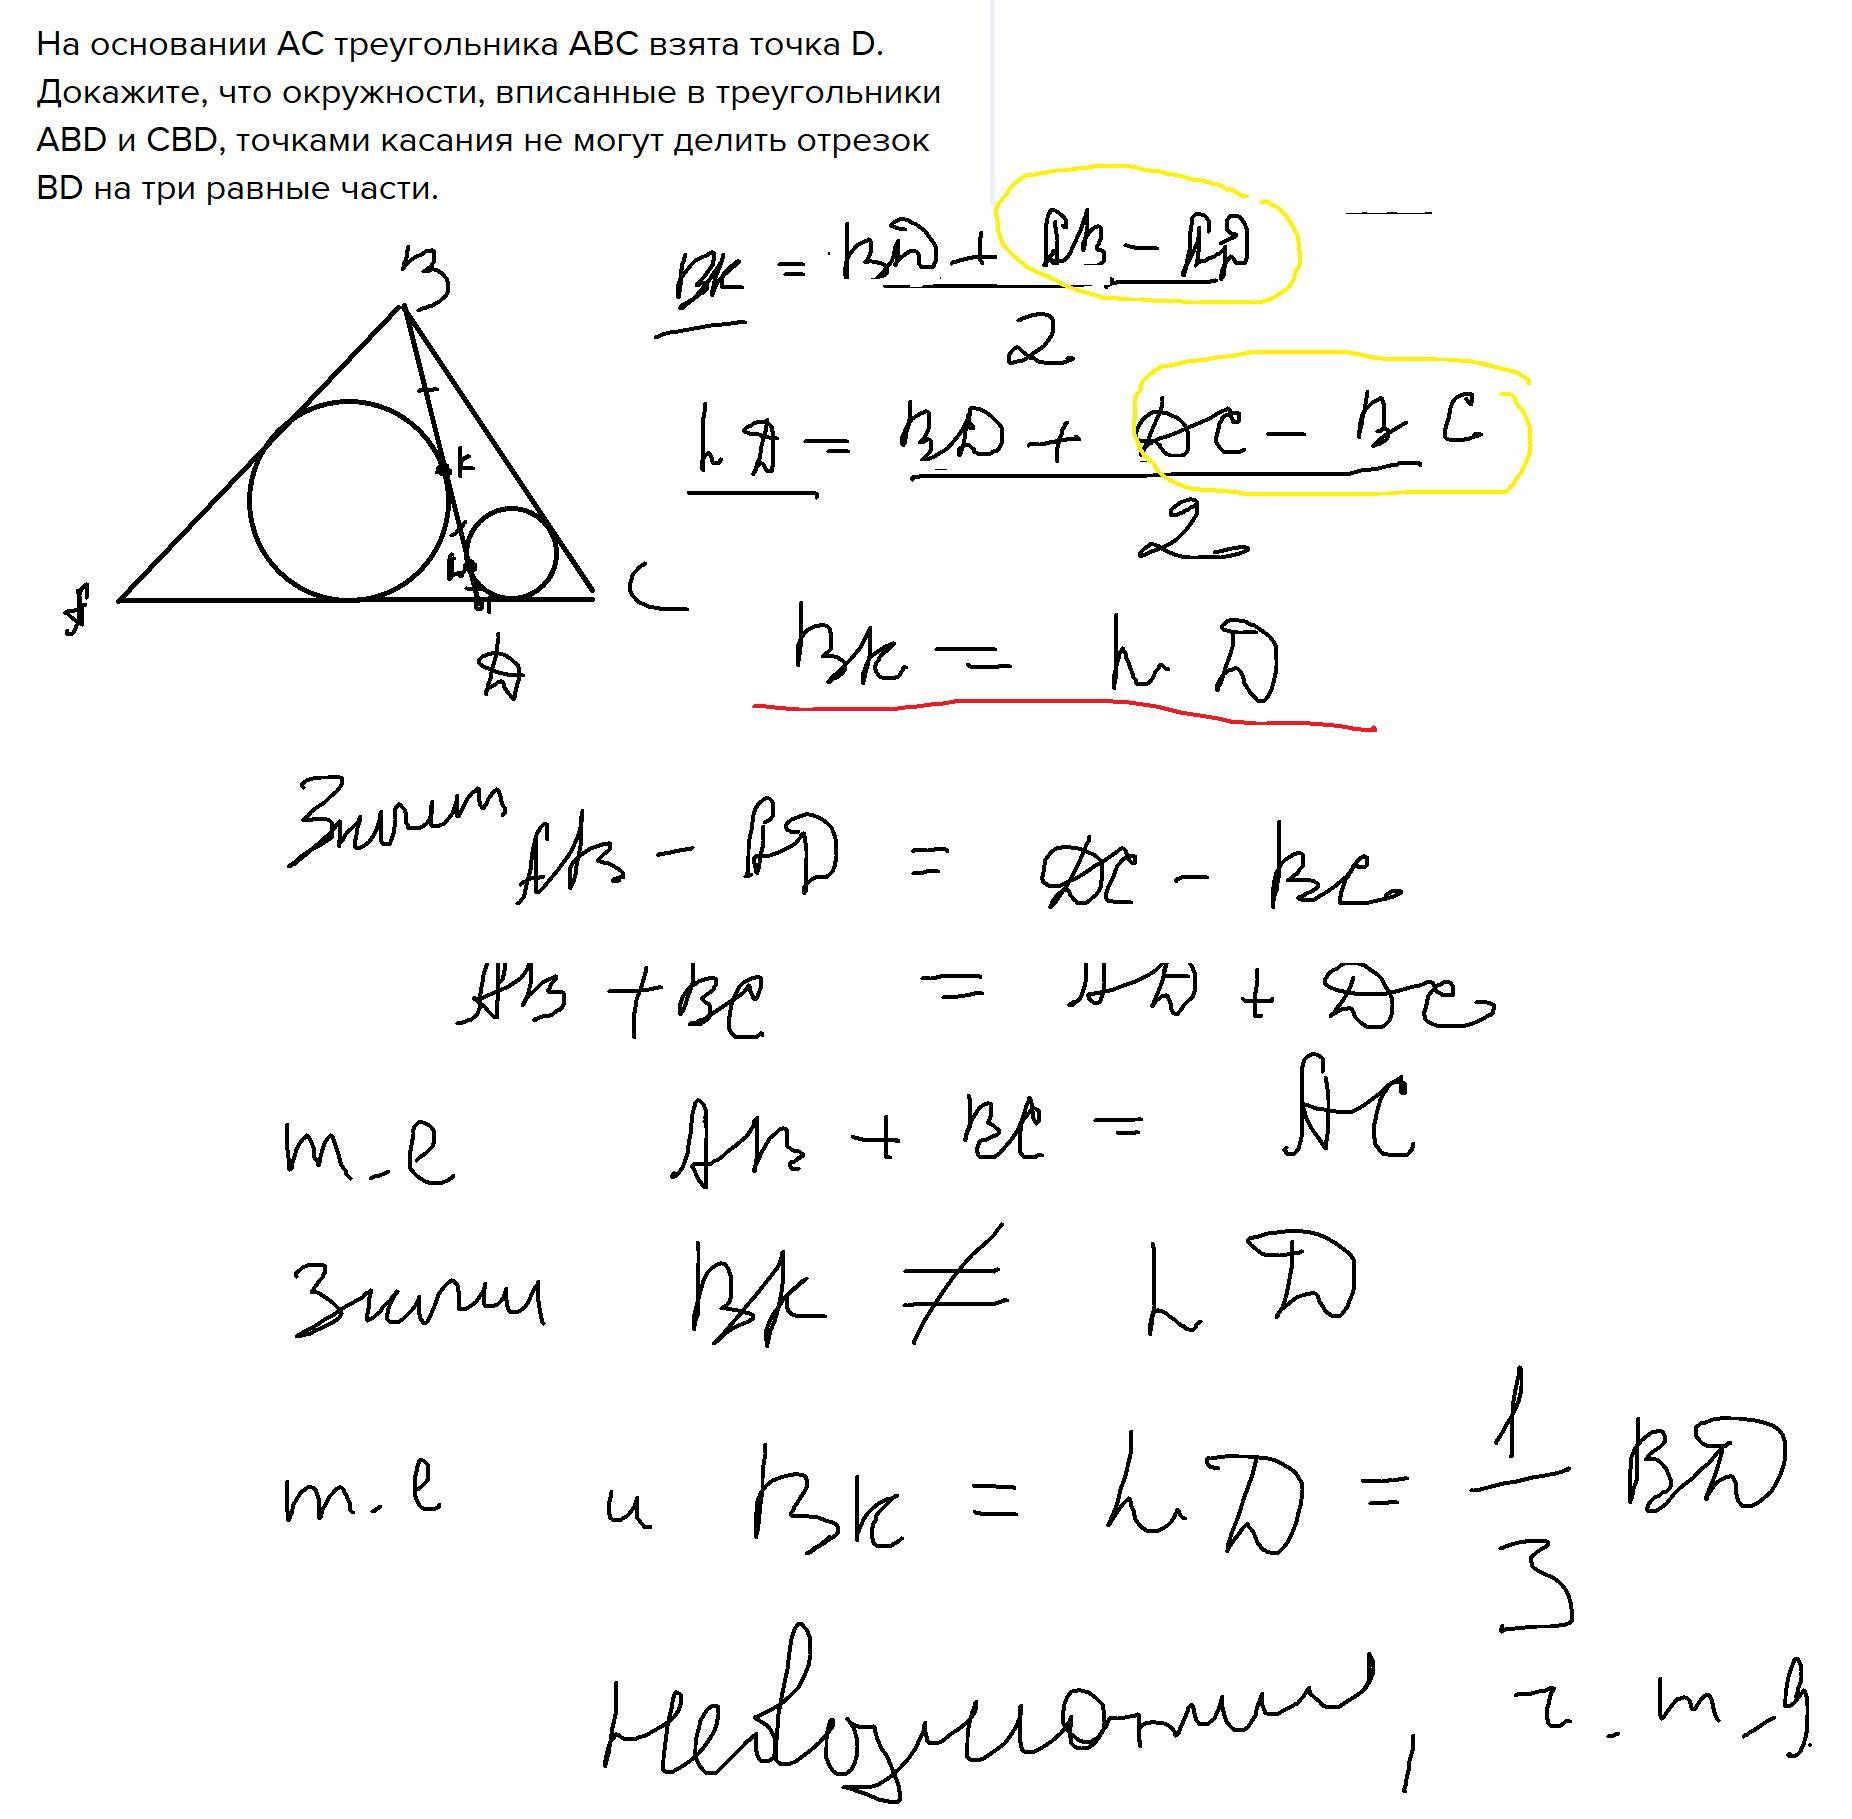 На основании АС треугольника АВС взята точка D.
Докажите, что окружности, вписанные в треугольники
ABD и CBD, точками касания не могут делить отрезок
BD на три равные части.
B
BK = BD + AB - AD
2
LD = BD + DC - BC
2
K
L
A
C
D
BK = LD
Значит AB - AD = DC - BC
AB + BC = AD + DC
т.е AB + BC = AC
Значит BK ≠ LD
т.е и BK = LD = 1/3 BD
невозможно, ч.т.д.